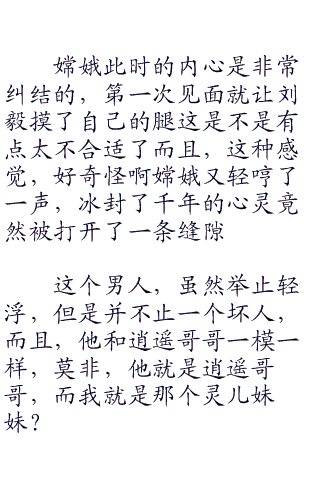 嫦娥此时的内心是非常
纠结的，第一次见面就让刘
毅摸了自己的腿这是不是有
点太不合适了而且，这种感
觉，好奇怪啊嫦娥又轻哼了
一声，冰封了千年的心灵竟
然被打开了一条缝隙
这个男人，虽然举止轻
浮，但是并不止一个坏人，
而且，他和逍遥哥哥一模一
样，莫非，他就是逍遥哥
哥，而我就是那个灵儿妹
妹？